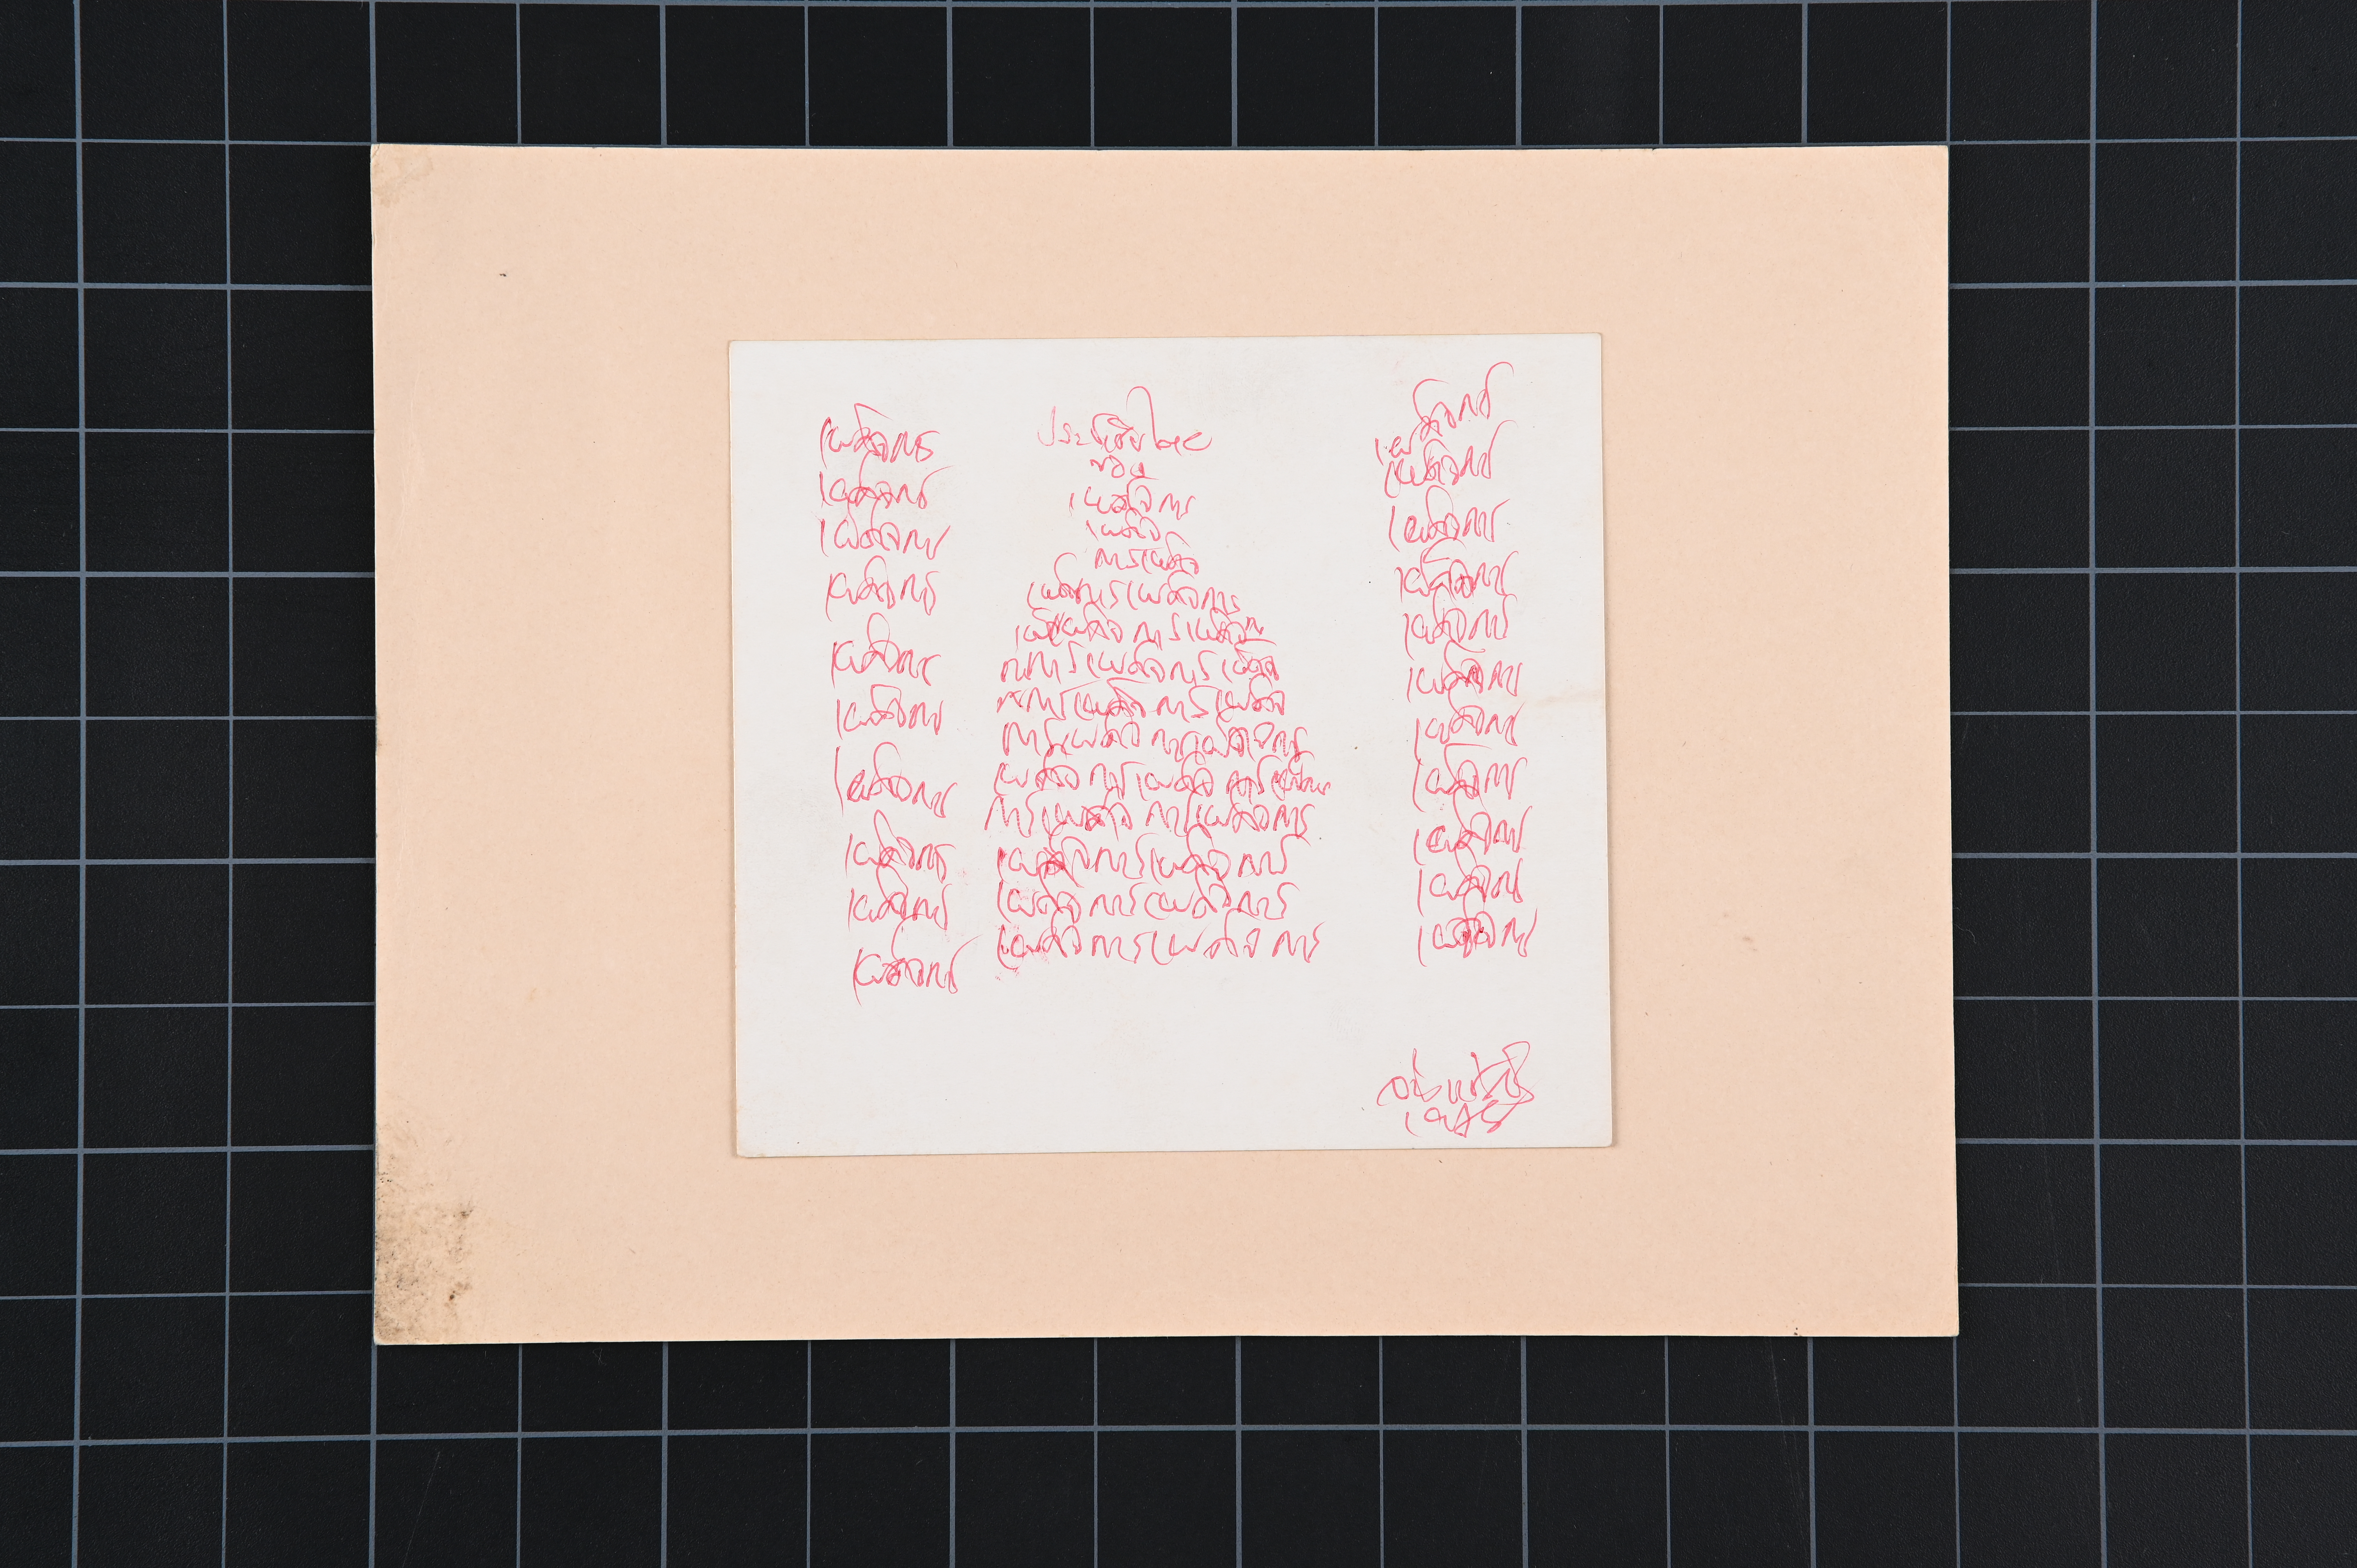 เผด็จการ
เผด็จการ
เผด็จการ
เผด็จการ
เผด็จการ
เผด็จการ
เผด็จการ
เผด็จการ
เผด็จการ
เผด็จการ
ประชาธิปไตย
ของ
เผด็จการ
เผด็จ
การเผด็จ
เผด็จการเผด็จการ
เผด็จการเผด็จ
การเผด็จการเผด็จ
การเผด็จการเผด็จ
การเผด็จการเผด็จการ
เผด็จการเผด็จการ
การเผด็จการเผด็จการ
เผด็จการเผด็จการ
เผด็จการเผด็จการ
เผด็จการเผด็จการ
เผด็จการ
เผด็จการ
เผด็จการ
เผด็จการ
เผด็จการ
เผด็จการ
เผด็จการ
เผด็จการ
เผด็จการ
เผด็จการ
เผด็จการ